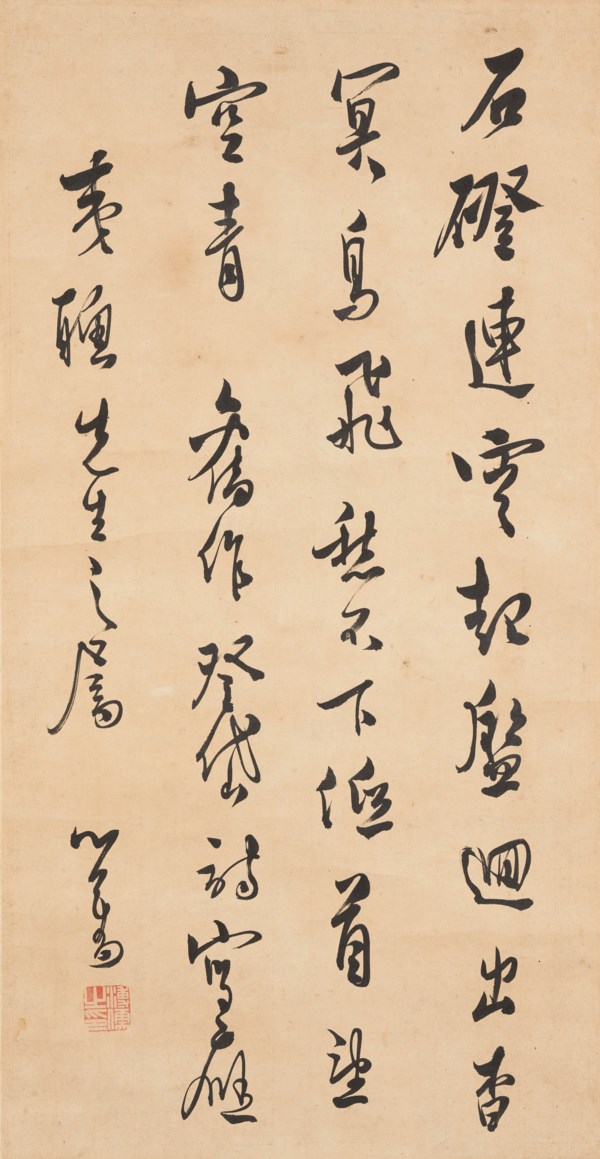 石磴連雲起盤迴出杳
冥鳥飛愁不下俛首望
空青 舊作登岱詩寫應
夷䑏先生之屬 心畬
溥儒之印